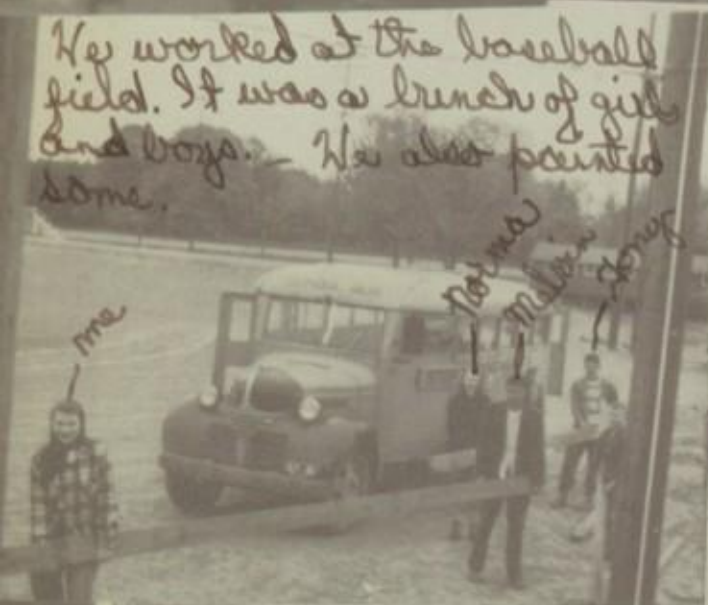 We worked at the baseball
field. It was a bunch of girls
and boys. - We also painted
some.
Norma
Melvin
Tony
me